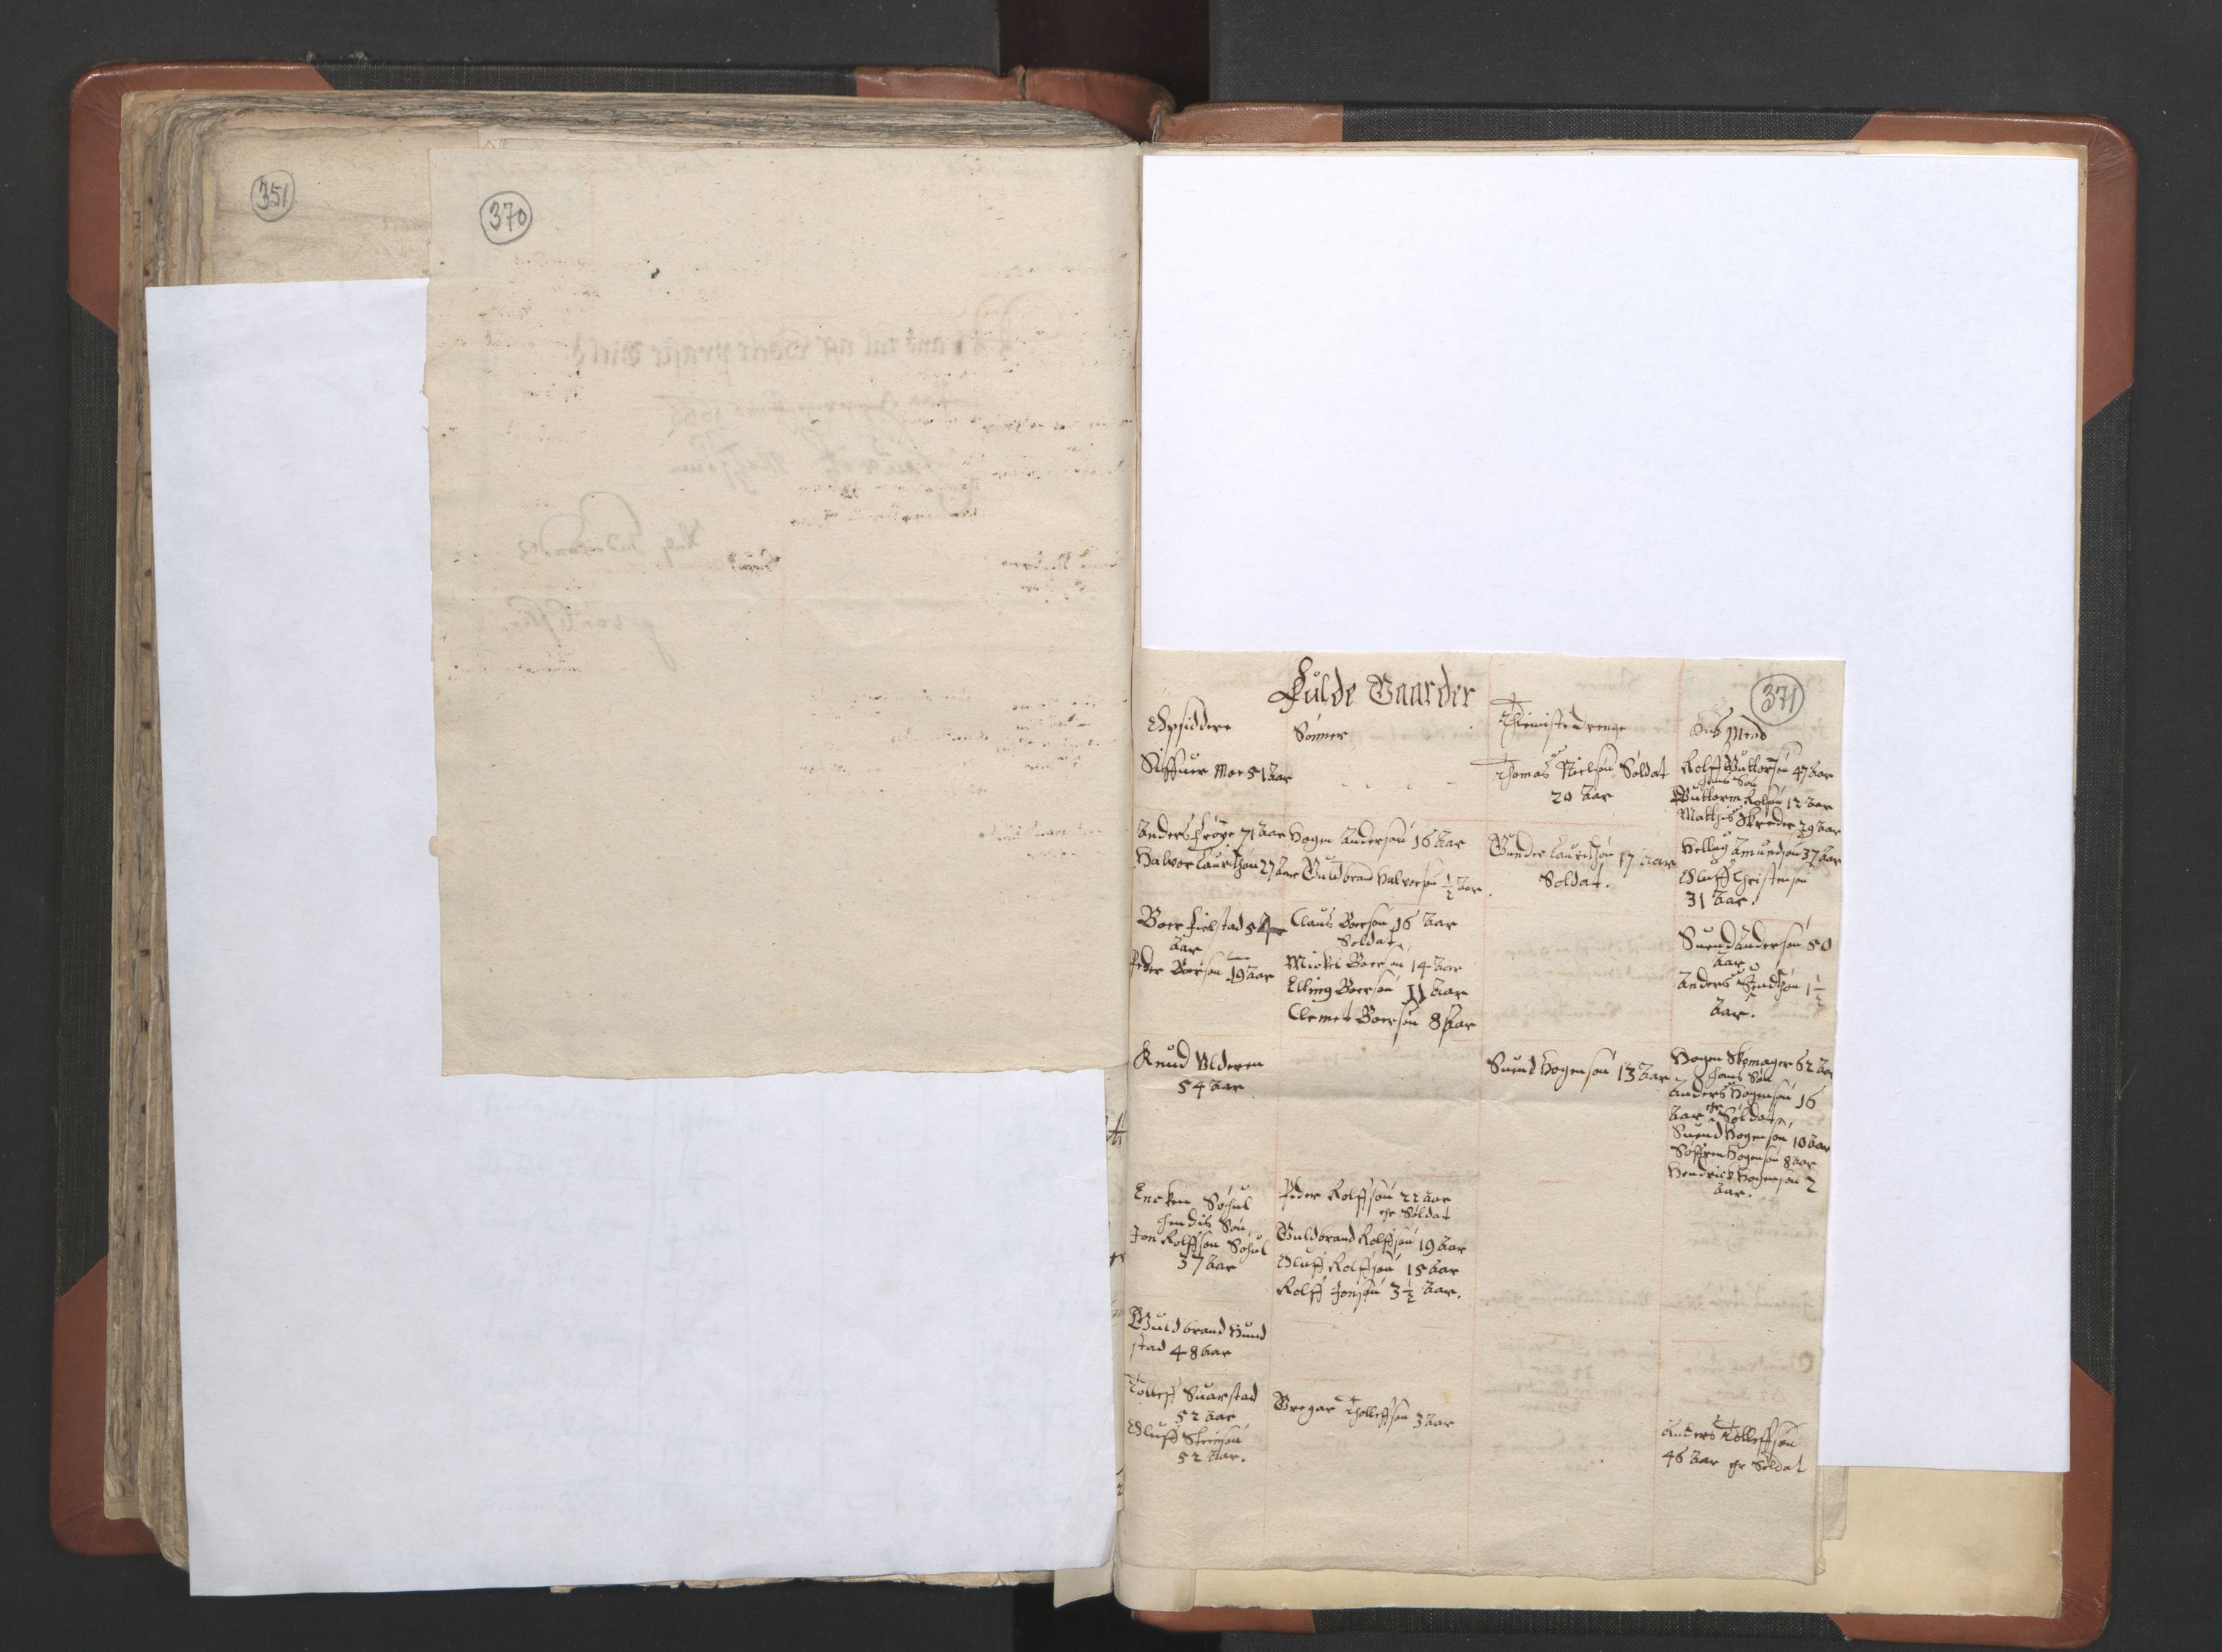 351
370
371
Fulde Gaarder
Opsiddere
Sønner
Thienistedrenge
Hus Mend
Siffuer Moe 51 Aar
Thomas Nielsøn Soldat
20 Aar
Rolff Guttorsøn 47 Aar
hans Søn
Guttorm Rolfsøn 12 Aar
Matthis Skreder 29 Aar
Anders Frøye 71 Aar
Halvor Lauritzøn 27 Aar
Hogen Andersøn 16 Aar
Guldbrand Halvorsøn ½ Aar
Gunder Lauritzøn 17 Aar
Soldat.
Hellug Amundsøn 37 Aar
Oluff Christensøn
31 Aar.
Boer Fielstad
Aar
Peder Boersøn 19 Aar
Claus Boersøn 16 Aar
Soldat
Mickel Boersøn 14 Aar
Elling Boersøn 11 Aar
Clemet Boersøn 8 Aar
Suend Andersøn 50
Aar
Anders Sendsøn 1½
Aar.
Knud Ulderen
54 Aar
Suend Hogensøn 13 Aar
Hogen Skomager 62 Aar
hans Søn
Anders Hogensøn 16
Aar er Soldat,
Suend Hogensøn 10 Aar
Søffren Hogensøn 8 Aar
Hendrick Hogensøn 2
Aar.
Encken Sohul
hendis Søn
Jon Rolffsøn Sohul
37 Aar
Peder Rolffsøn 22 Aar
er Soldat
Guldbrand Rolffsøn 19 Aar
Oluff Rolffsøn 15 Aar
Rolff Jonsøn 3½ Aar.
Guldbrand Hund
stad 48 Aar
Tolleff Suarstad
52 Aar
Oluff Steensøn
52 Aar.
Bregar Tholleffsøn 3 Aar
Anders Tolleffsøn
46 Aar er Soldat